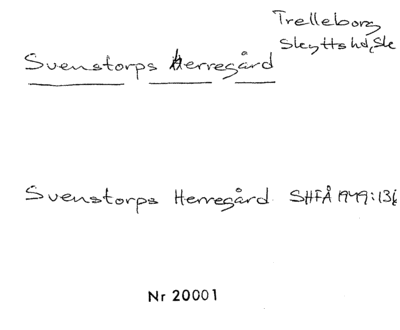 Trelleborg
Skytts hd, Sk
Svenstorps Herregård
Svenstorps Herregård SHFÅ 1949:136
Nr 20001